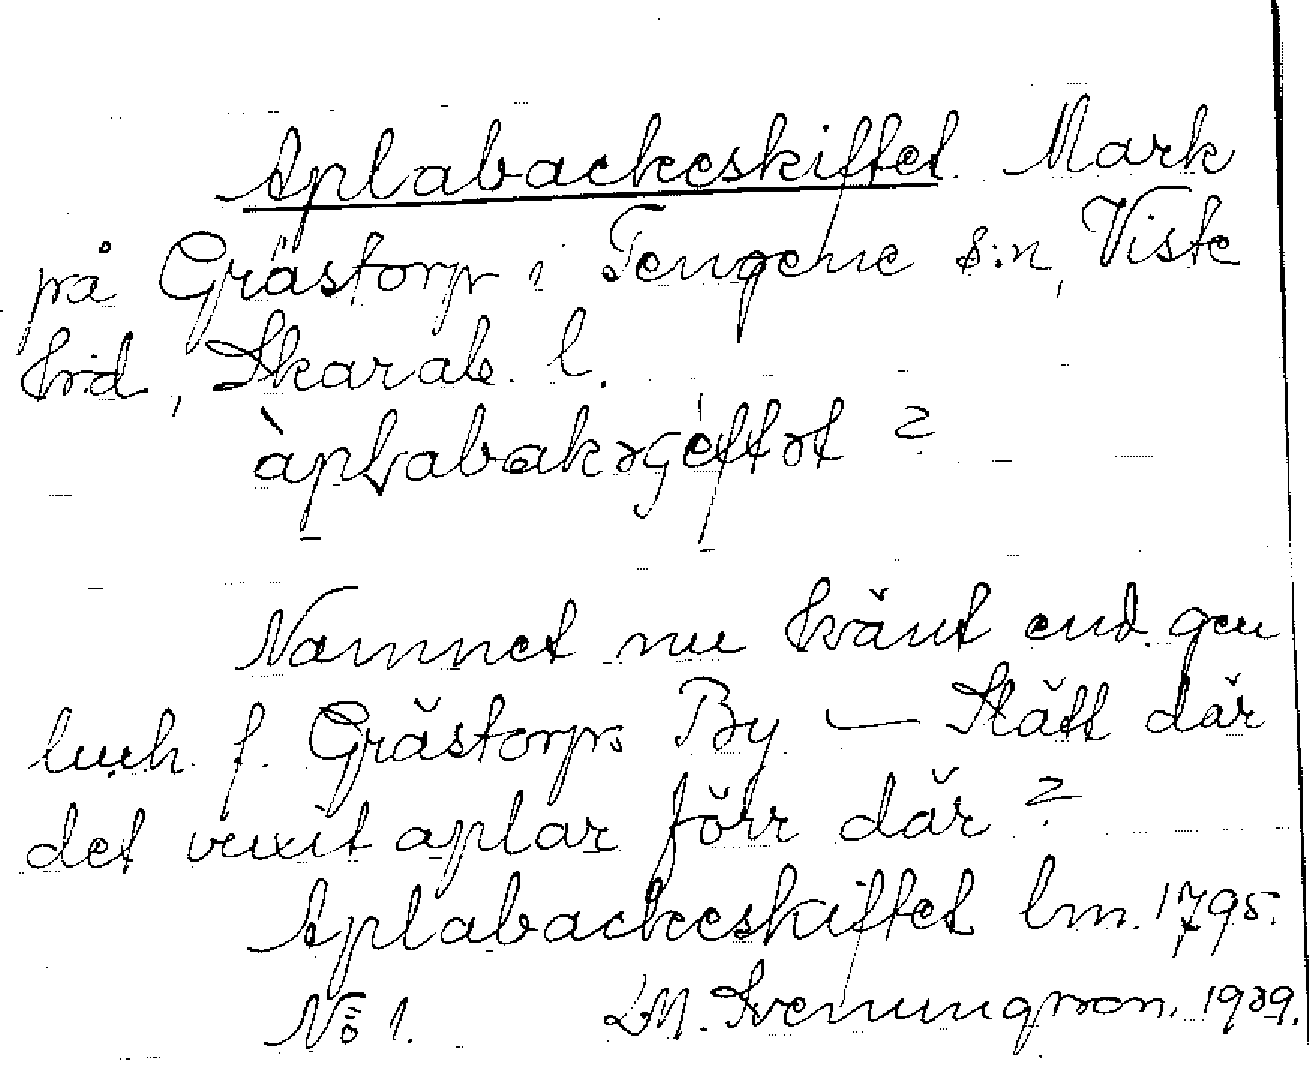 Aplabackeskiftet. Mark
på Grästorp i Tengene s:n, Viste
hrd, Skarab. l.
àpɫabakəʂéftət ?
Namnet nu okänt enl. gen
luch. f. Grästorps By — Slätt där
det vuxit aplar förr där ?
Aplabackeskiftet lm. 1795.
No 1. LM. Svenungsson, 1929.